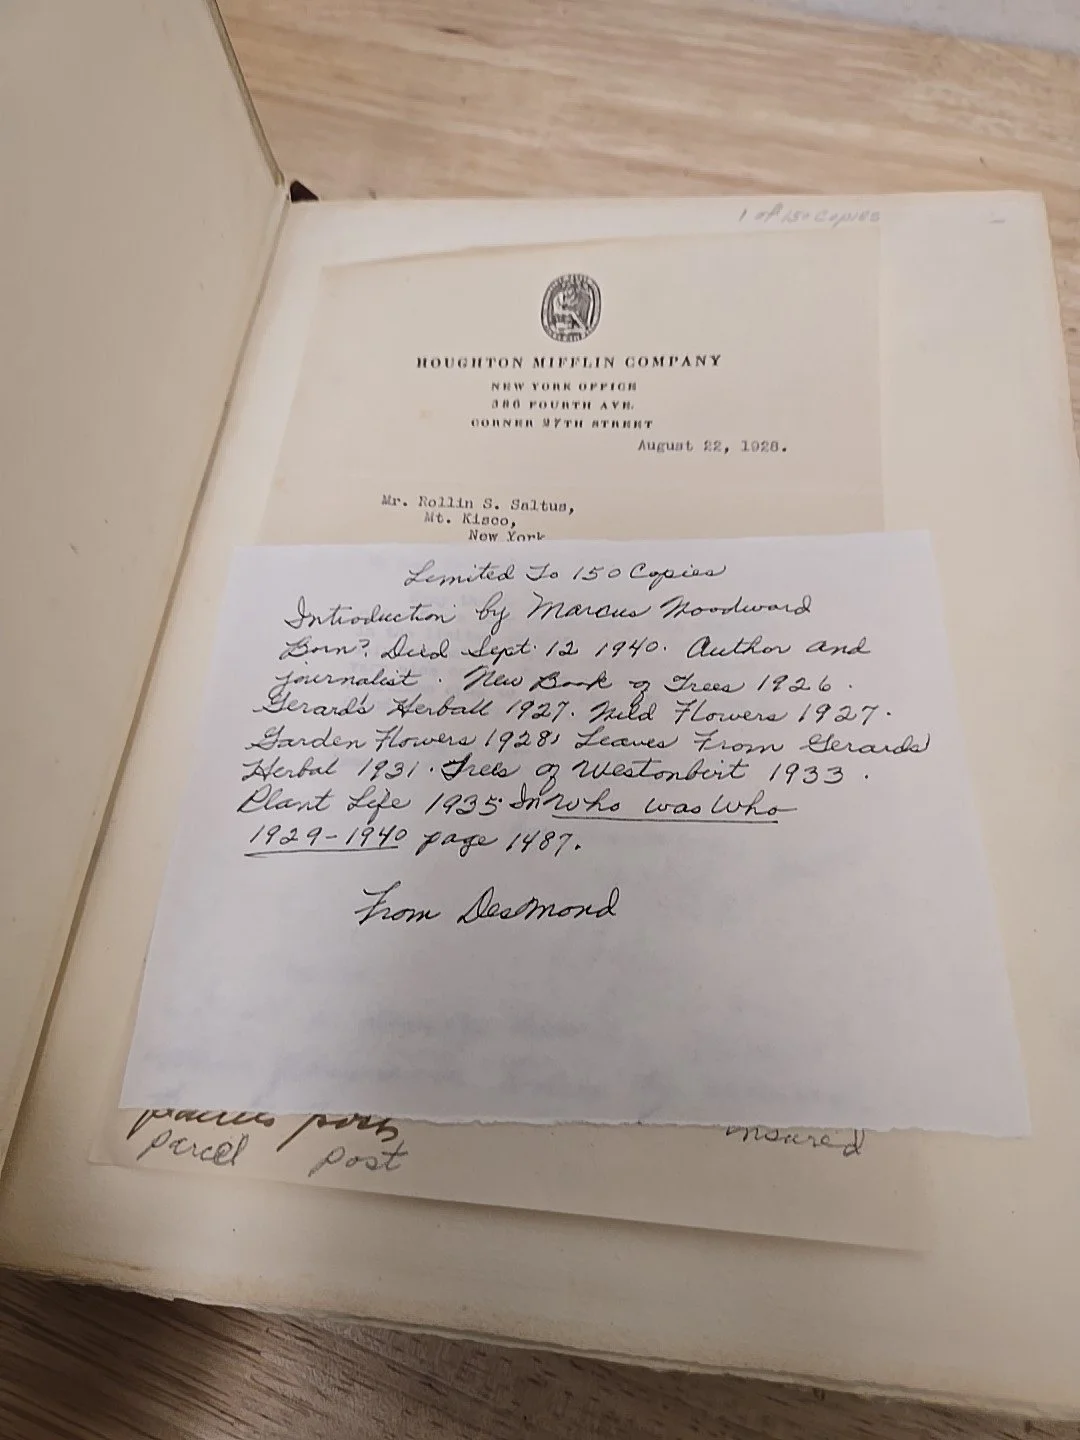 1 of 150 Copies
HOUGHTON MIFFLIN COMPANY
NEW YORK OFFICE
386 FOURTH AVE.
CORNER 27TH STREET
August 22, 1928.
Mr. Rollin S. Saltus,
Mt. Kisco,
New York
Limited To 150 Copies
Introduction by Marcus Woodward
Born? Died Sept. 12 1940. Author and
journalist. New Book of Trees 1926.
Gerard's Herball 1927. Wild Flowers 1927.
Garden Flowers 1928, Leaves From Gerards
Herbal 1931. Trees of Westonbirt 1933.
Plant Life 1935. In Who was Who
1929-1940 page 1487.
From Desmond
post
parcel post
insured